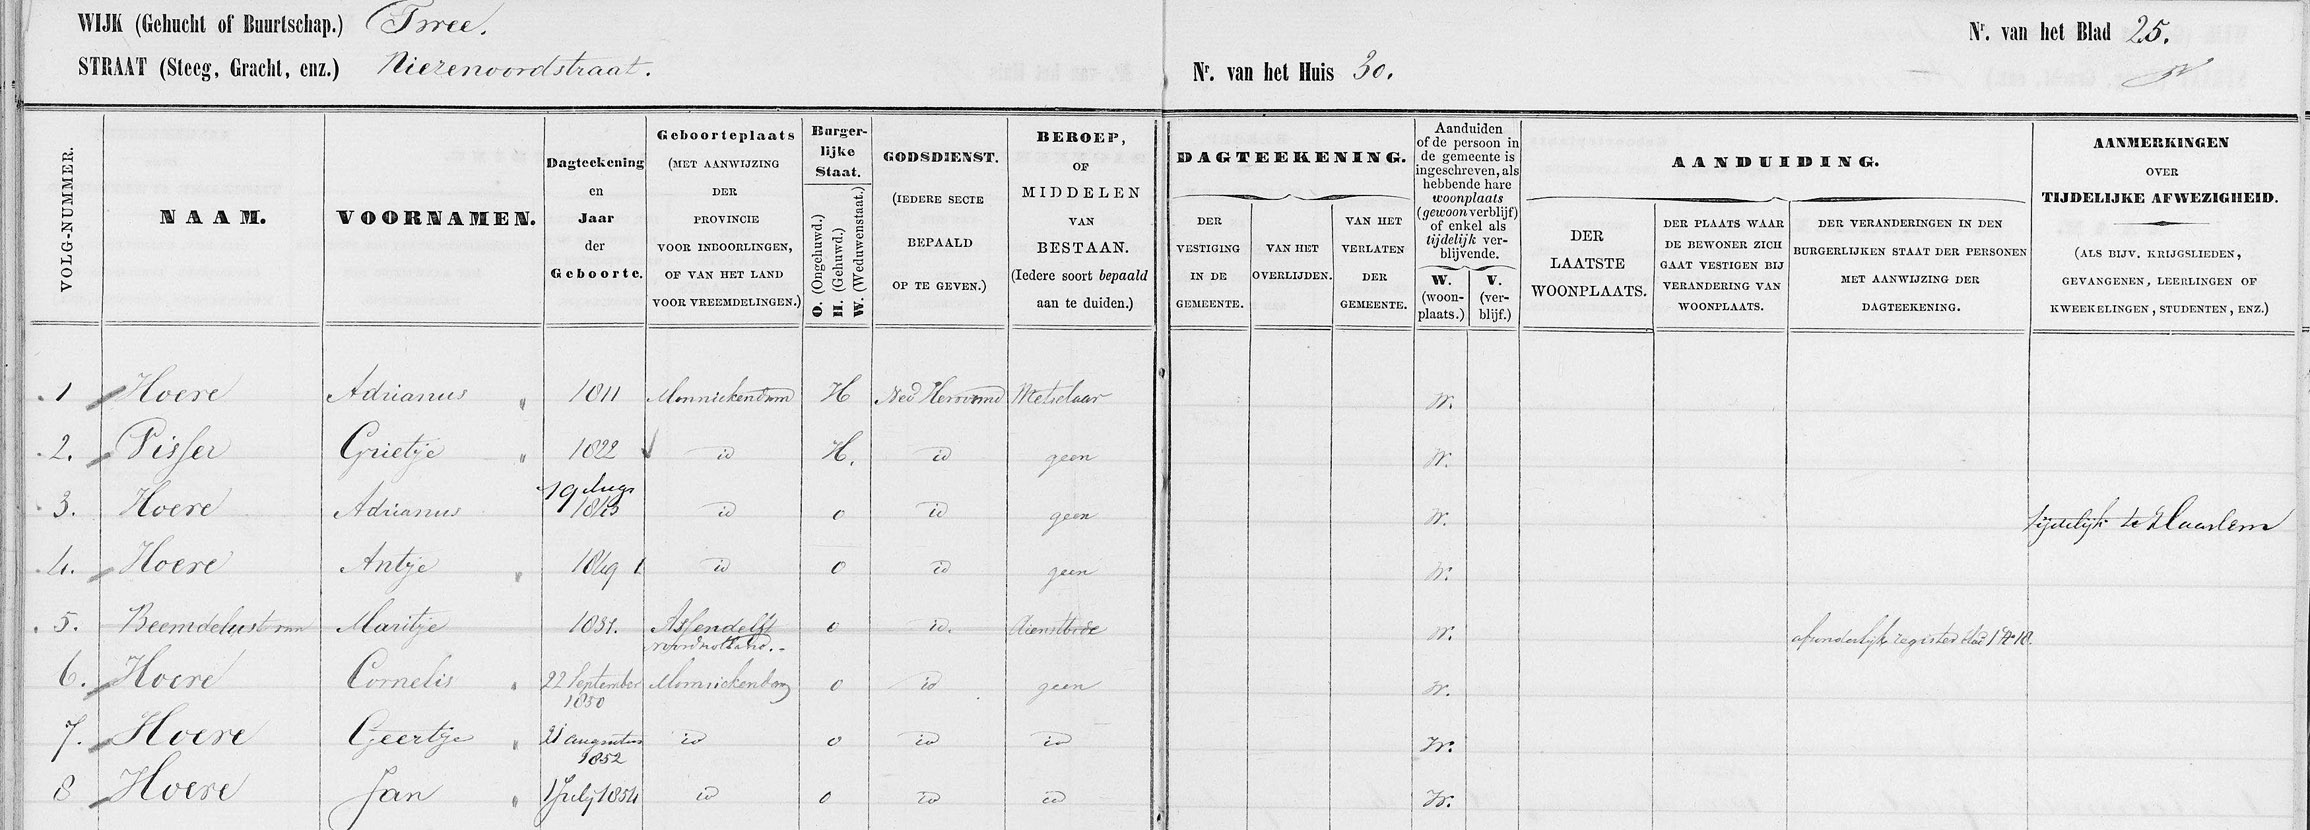 WIJK (Gehucht of Buurtschap.) Twee.
Nr. van het Blad 25.
STRAAT (Steeg, Gracht, enz.) Niezenoordstraat.
Nr. van het Huis 30.
VOLG-NUMMER.
NAAM.
VOORNAMEN.
Dagteekening
en
Jaar
der
Geboorte.
Geboorteplaats
(MET AANWIJZING
DER
PROVINCIE
VOOR INBOORLINGEN,
OF VAN HET LAND
VOOR VREEMDELINGEN.)
Burger-
lijke
Staat.
O. (Ongehuwd.)
H. (Gehuwd.)
W. (Weduwenstaat.)
GODSDIENST.
(IEDERE SECTE
BEPAALD
OP TE GEVEN.)
BEROEP,
OF
MIDDELEN
VAN
BESTAAN.
(Iedere soort bepaald
aan te duiden.)
DAGTEEKENING.
DER
VESTIGING
IN DE
GEMEENTE.
VAN HET
OVERLIJDEN.
VAN HET
VERLATEN
DER
GEMEENTE.
Aanduiden
of de persoon in
de gemeente is
ingeschreven, als
hebbende hare
woonplaats
(gewoon verblijf)
of enkel als
tijdelijk ver-
blijvende.
W.
(woon-
plaats.)
V.
(ver-
blijf.)
AANDUIDING.
DER
LAATSTE
WOONPLAATS.
DER PLAATS WAAR
DE BEWONER ZICH
GAAT VESTIGEN BIJ
VERANDERING VAN
WOONPLAATS.
DER VERANDERINGEN IN DEN
BURGERLIJKEN STAAT DER PERSONEN
MET AANWIJZING DER
DAGTEEKENING.
AANMERKINGEN
OVER
TIJDELIJKE AFWEZIGHEID.
(ALS BIJV. KRIJGSLIEDEN,
GEVANGENEN, LEERLINGEN OF
KWEEKELINGEN, STUDENTEN, ENZ.)
1 Hoere Adrianus " 1811 Monnickendam H Ned Hervormd Metselaar W.
2. Visser Grietje " 1822 id H. id geen W.
3. Hoere Adrianus 19 Aug 1843 id O id geen W. tijdelijk te Haarlem
4. Hoere Antje " 1849 id O id geen W.
5. Beemdelust van Maritje 1831. Assendelft O id. dienstbode W. afzonderlijk register
noordholland.
6. Hoere Cornelis " 22 September Monnickendam O id geen W.
1850
7. Hoere Geertje " 21 augustus id O id id W.
1852
8 Hoere Jan " 1 July 1854 id O id id W.